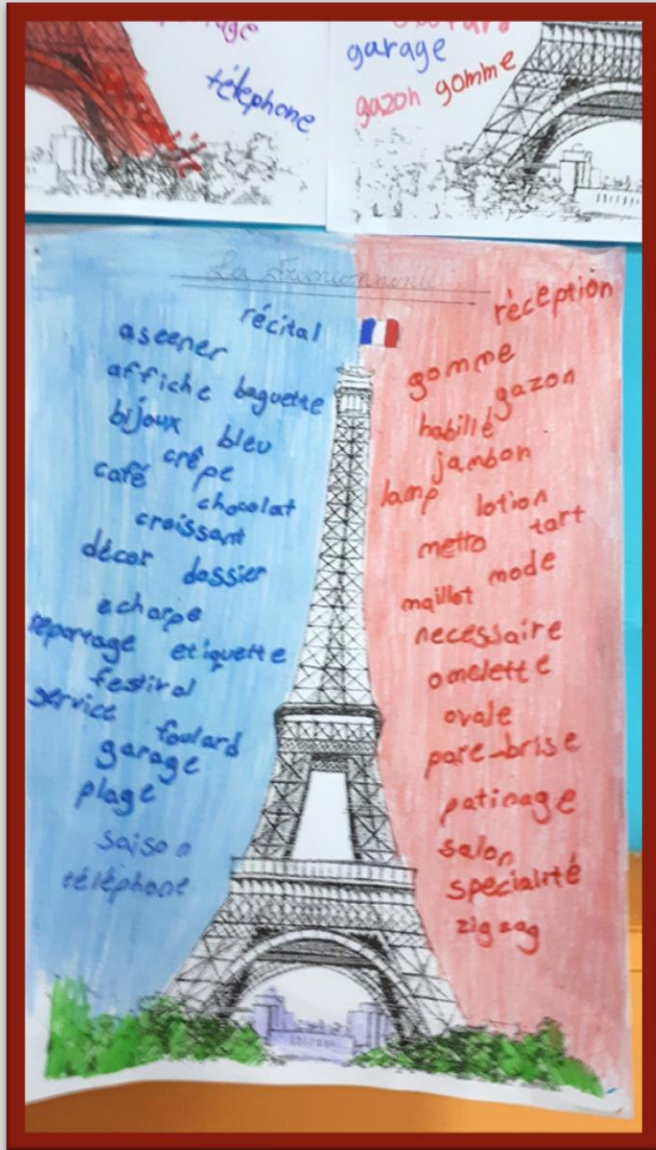 télephone
garage
gazon gomme
La Francophonie
récital
aseener
affiche baguette
bijoux bleu
crêpe
café
chocolat
croissant
décor dossier
echarpe
reportage etiquette
festival
service
foulard
garage
plage
saison
téléphone
réception
gomme
gazon
habillé
jambon
lamp lotion
metro tart
maillot mode
necessaire
omelette
ovale
pare-brise
patinage
salon
specialité
zigzag